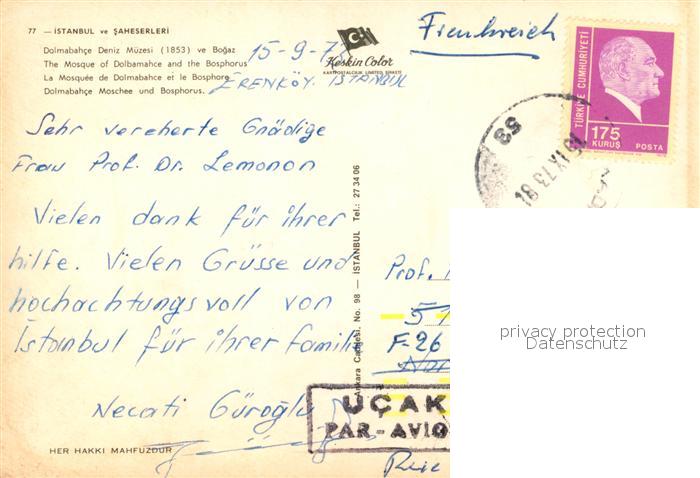 77 — İSTANBUL ve ŞAHESERLERİ
Dolmabahçe Deniz Müzesi (1853) ve Boğaz
The Mosque of Dolbamahce and the Bosphorus
La Mosquée de Dolmabahce et le Bosphore
Dolmabahçe Moschee und Bosphorus.
Keskin Color
KARTPOSTALCILIK LIMITED ŞİRKETİ
15-9-73
ERENKÖY. İSTANBUL
Frenkreich
TÜRKİYE CUMHURİYETİ
175
KURUŞ
POSTA
Sehr vereherte Gnädige
Frau Prof. Dr. Lemonon
Vielen dank für ihrer
hilfe. Vielen Grüsse und
hochachtungsvoll von
İstanbul für ihrer familie
Necati Güroğlu
Ankara Caddesi. No. 98 — İSTANBUL Tel.: 27 34 06
Prof.
F-26
UÇAK
PAR-AVIO
HER HAKKI MAHFUZDUR
privacy protection
Datenschutz